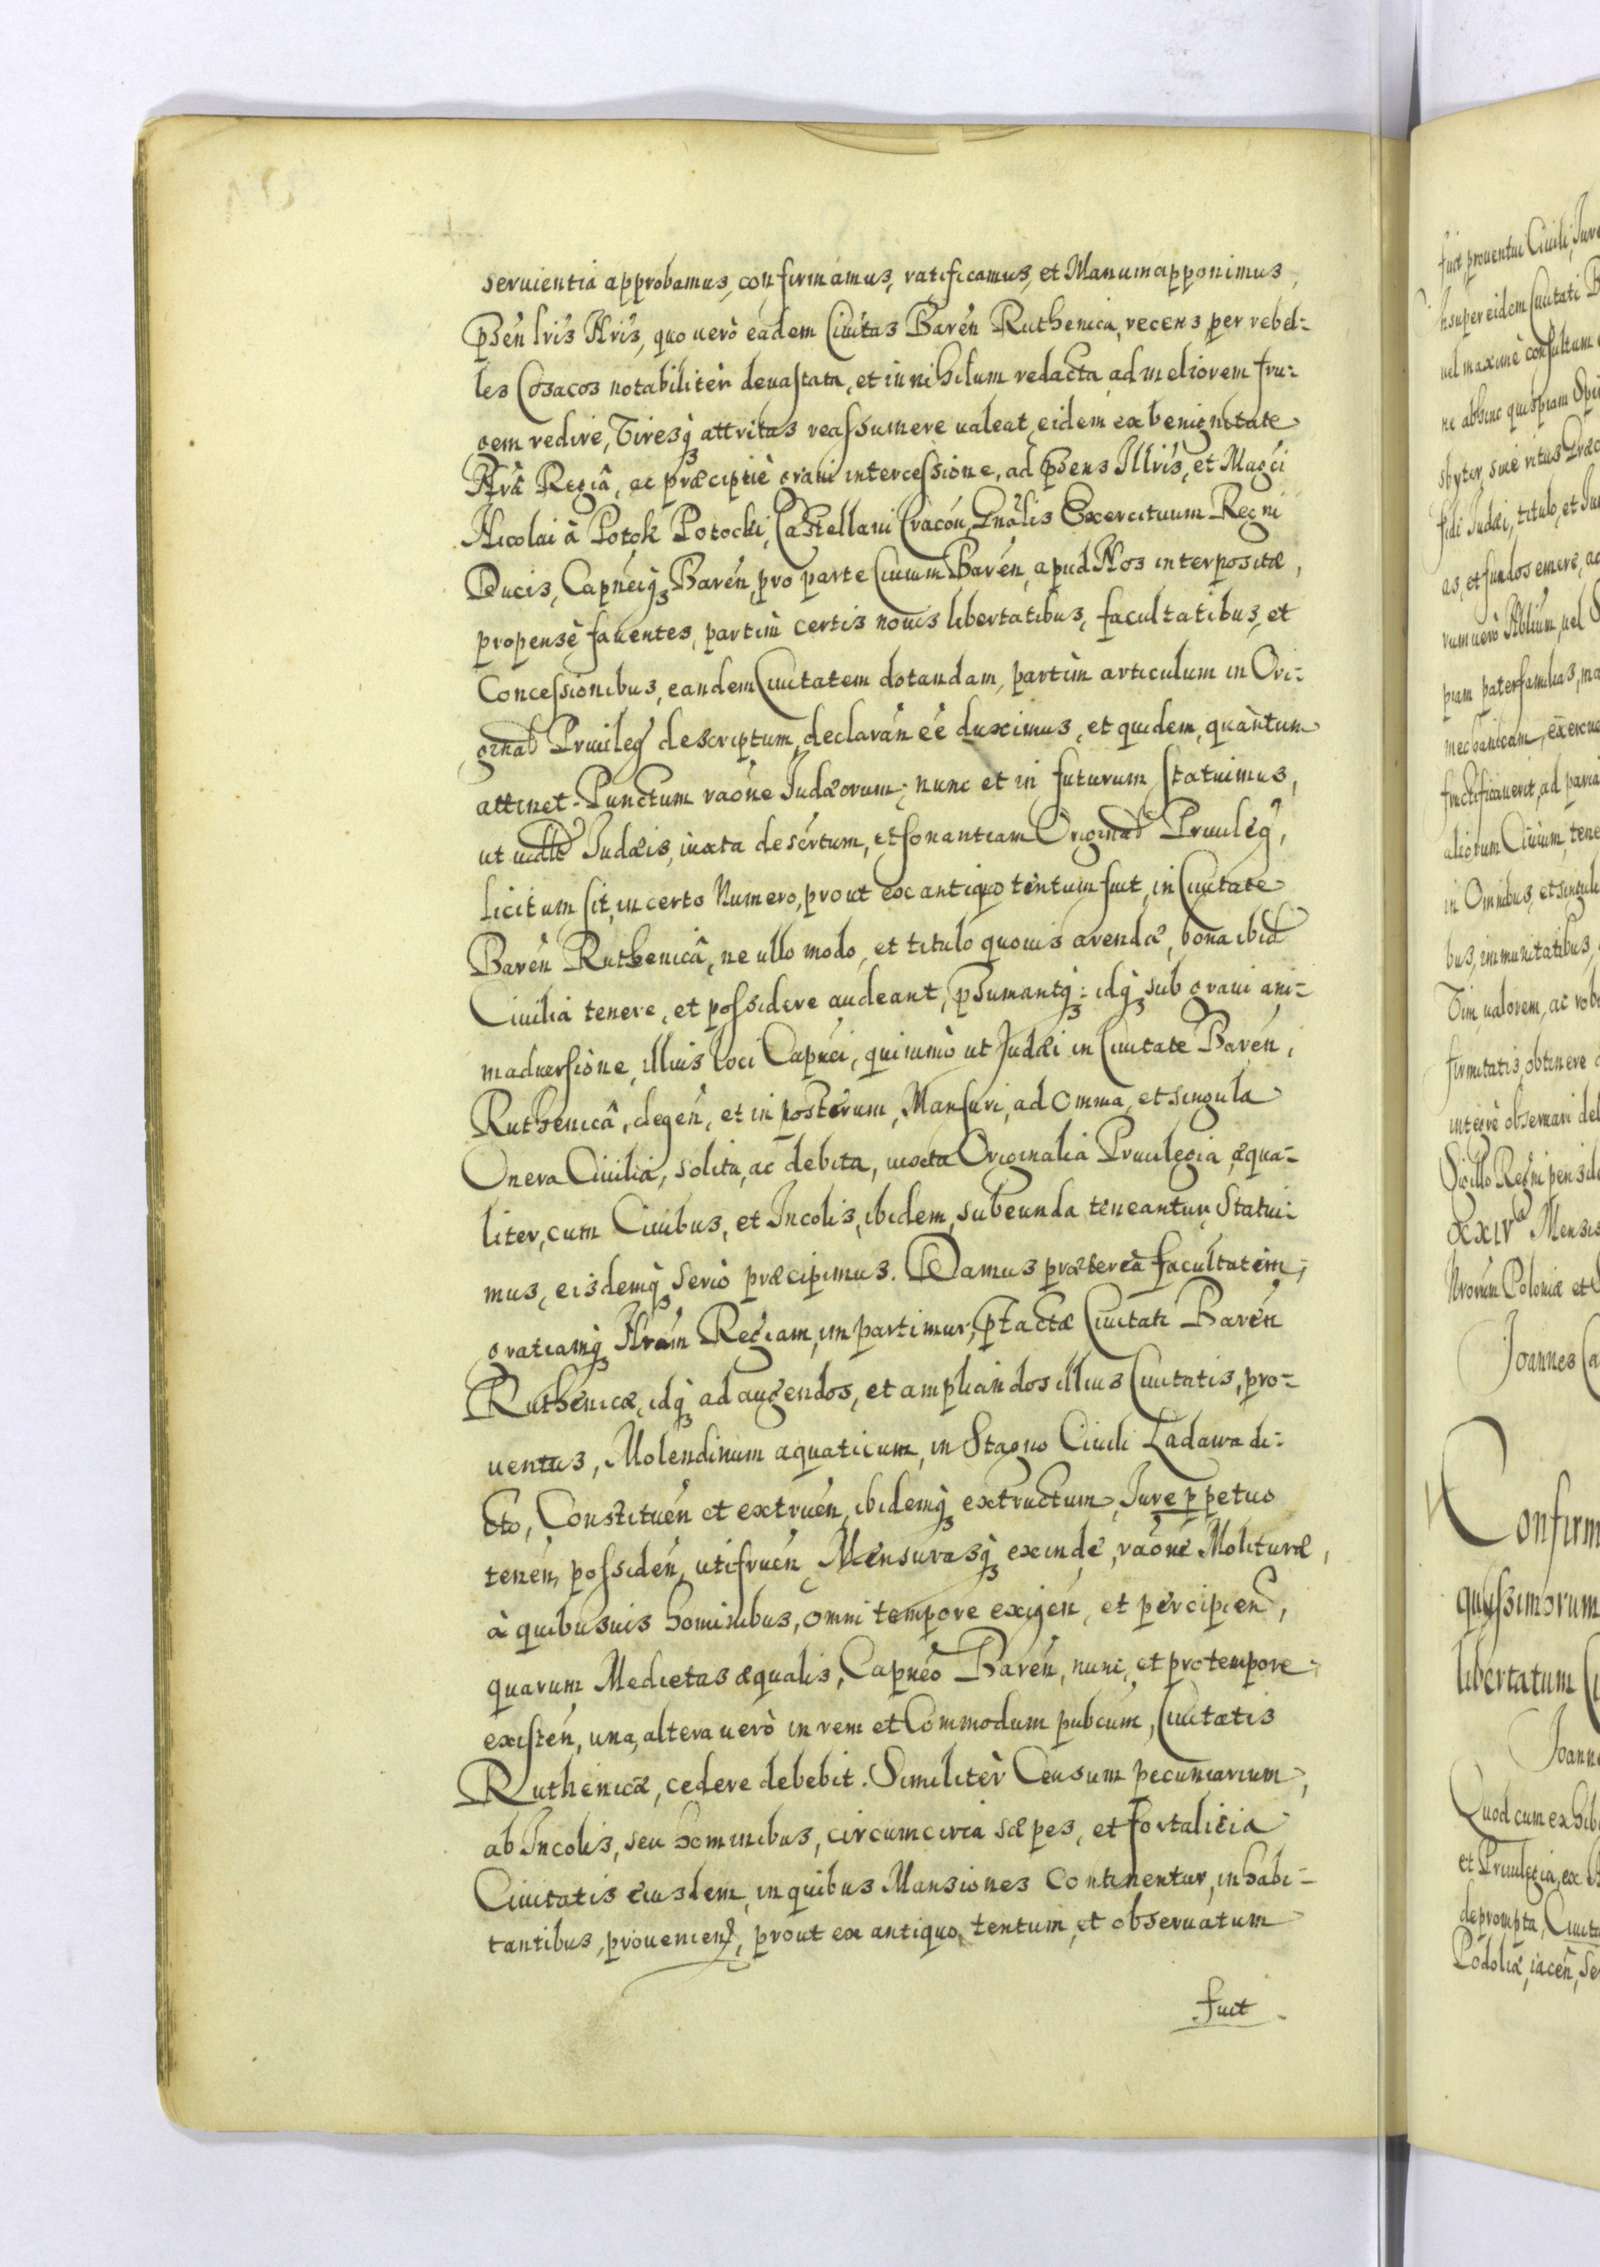 seruientia approbamus, confirmamus, ratificamus, et Manum apponimus,
pñsen lrīs Nrīs, quo uerò eadem Ciuitas Barēn Ruthenica, recens per rebel-
les Cosacos notabilitèr deuastata, et in nihilum redacta, ad meliorem fru-
gem redire, Viresq₃ attritas reassumere ualeat, eidem ex benignitate
Nrâ Regiâ, ac præcipuè graui intercessione, ad pñsens Illrīs, et Magci
Nicolai à Potok Potocki, Castellani Cracōn, Gnālis Exercituum Regni
Ducis, Capnēiq₃ Barēn, pro parte Ciuium Barēn, apud Nos interpositæ,
propensè fauentes, partim certis nouis libertatibus, facultatibus, et
Concessionibus, eandem Ciuitatem dotandam, partim articulum in Ori-
ginal Priuileg descriptum, declarān eē duximus, et quidem, quàntum
attinet Punctum raōne Judæorum; nunc et in futurum statuimus,
ut Judæis, iuxta desertum, et sonantiam Original Priuileg,
licitum sit, in certo Numero, prout ex antiquo tentum fuit, in Ciuitate
Barēn Ruthenicâ, ne ullo modo, et titulo quouis arendæ, bona ibid
Ciuilia tenere, et possidere audeant, p̄sumantq₃: idq₃ sub graui ani-
maduersione, illius loci Capnēi, quinimò ut Judæi in Ciuitate Barēn,
Ruthenicâ, degēn, et in posterum, Mansuri, ad Omnia, et singula
Onera Ciuilia, solita, ac debita, iuxta Originalia Priuilegia, æqua-
liter, cum Ciuibus, et Incolis, ibidem, subeunda teneantur, Statui-
mus, eisdemq₃ seriò præcipimus. Damus prætereà facultatem,
gratiamq₃ Nrām Regiam, impartimur, p̄tactæ Ciuitati Barēn
Ruthenicæ, idq₃ ad augendos, et ampliandos illius Ciuitatis, pro-
uentus, Molendinum aquaticum, in Stagno Ciuili Ladawa di-
cto, Constituēn et extruēn, ibidemq₃ extructum, Jure p̱petuo
tenēn, possidēn, utifruēn, Mensurasq₃ exinde, raōne Molituræ,
à quibusuis hominibus, omni tempore exigēn, et percipien,
quarum Medietas æqualis, Capnēo Barēn, nunc, et pro tempore
existēn, una, altera uerò in rem et Commodum pubcum, Ciuitatis
Ruthenicæ, cedere debebit. Similitèr Censum pecuniarium,
ab Incolis, seu hominibus, circumcirca sæpes, et fortalitia
Ciuitatis eiusdem, in quibus Mansiones Continentur, inhabi-
tantibus, prouenien, prout ex antiquo, tentum, et obseruatum
fuit
fuit prouentui Ciuili, Jure
Insuper eidem Ciuitati B
uel maximè consultum
ne abhinc quispiam Spi
sbyter, siue ritus Græc
fidi Judæi, titulo, et Ju
as, et fundos emere, ac
rum uerò Nblium, uel
piam paterfamilias, ma
mechanicam, exercue
fructificauerit, ad paria
aliorum Ciuium, tene
in Omnibus, et singuli
bus, immunitatibus,
Vim ualorem, ac rob
firmitatis, obtinere
integrè obseruari deb
Sigillo Regni pensile
XXIV Mensis
Nrorum Poloniæ et
Joannes Ca
Confirm
quissimorum
libertatum Ci
Joanne
Quod cum exhib
et Priuilegia, ex
deprompta, Ciuita
Podoliæ, iacēn, Se